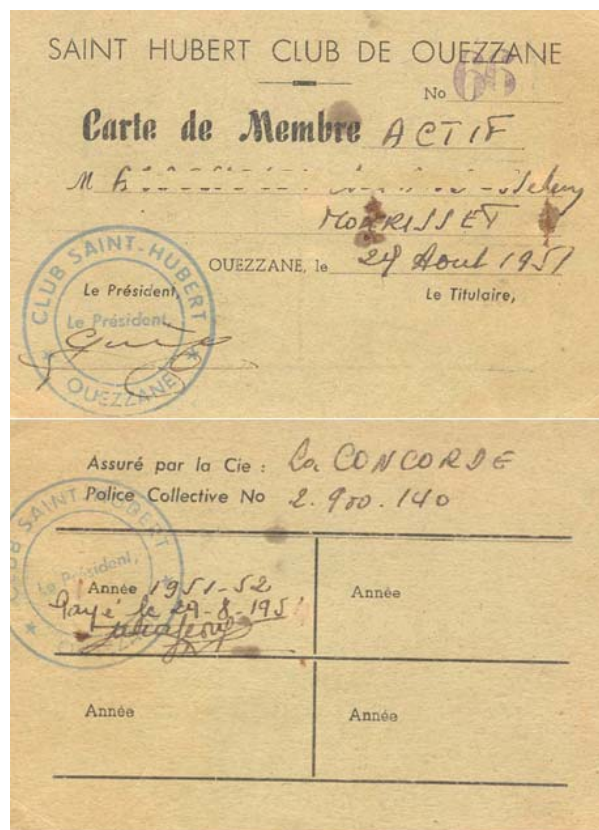 SAINT HUBERT CLUB DE OUEZZANE
No 66
Carte de Membre ACTIF
M
MORRISSET
OUEZZANE, le 29 Aout 1951
Le Président, Le Titulaire,
CLUB SAINT-HUBERT
Le Président,
★ OUEZZANE ★
Assuré par la Cie : La CONCORDE
Police Collective No 2.900.140
CLUB SAINT-HUBERT
Le Président,
Année 1951-52 Année
Payé le 29-8-1951
Année Année